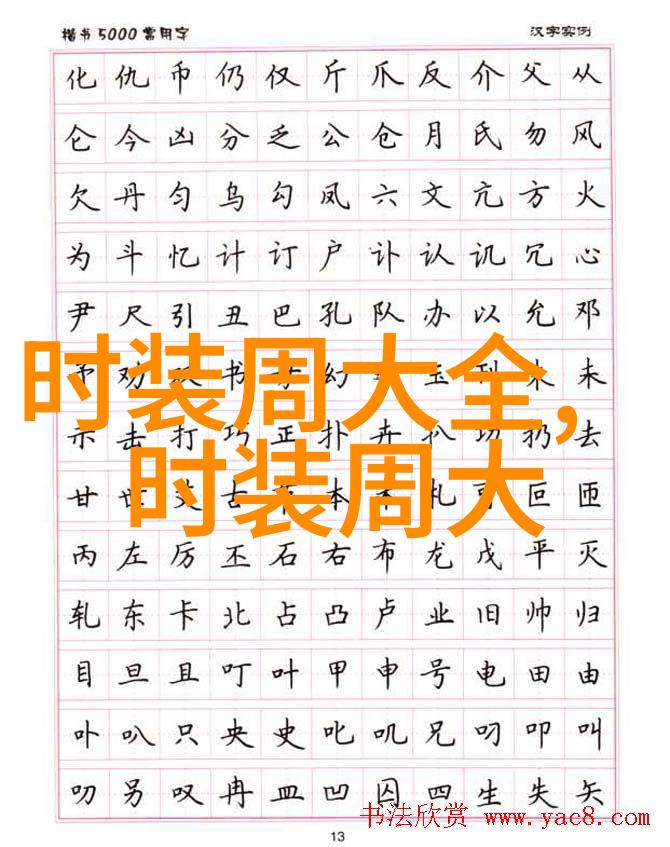 楷书5000常用字 汉字实例
化 仇 币 仍 仅 斤 爪 反 介 父 从
仑 今 凶 分 乏 公 仓 月 氏 勿 风
欠 丹 匀 乌 勾 凤 六 文 亢 方 火
为 斗 忆 计 订 户 讣 认 讥 冗 心
尹 尺 引 丑 巴 孔 队 办 以 允 邓
予 劝 双 书 幻 玉 刊 末 未
时装周大全,
示 击 打 巧 正 扑 卉 扒 切 扔 去
时装周大
甘 世 艾 古 节 本 术 札 可 叵 匝
丙 左 厉 丕 石 右 布 龙 戊 平 灭
轧 东 卡 北 占 凸 卢 业 旧 帅 归
目 旦 且 叮 叶 甲 申 号 电 田 由
卟 叭 只 央 史 叱 叽 兄 叼 叩 叫
叻 另 叹 冉 皿 凹 囚 四 生 失 矢
书法欣赏 www.yac8.com
13